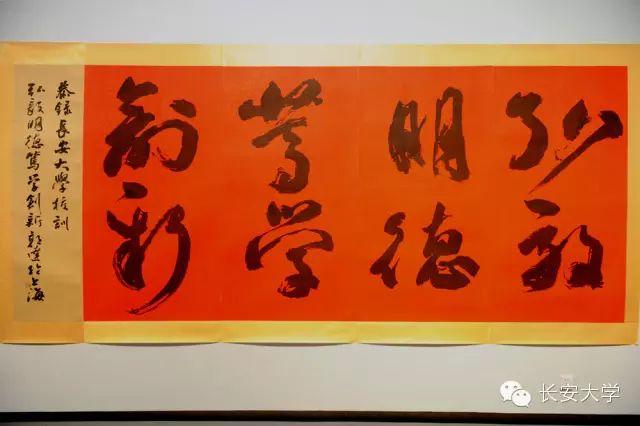 弘毅
明德
篤学
創新
恭録長安大學校訓
弘毅明德篤学創新 於上海
长安大学